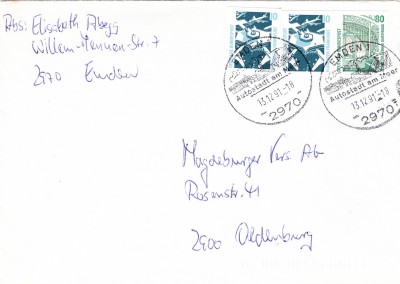 Abs: Elisabeth Abegg
Willem-Mennen-Str. 7
2970 Emden
10
10
80
EMDEN 1
Autostadt am Meer
13.12.91-18
2970
EMDEN 1
Autostadt am Meer
13.12.91-18
2970
Magdeburger Vers. AG
Rosenstr. 41
2900 Oldenburg